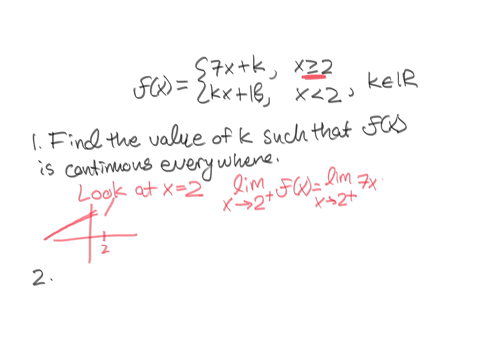 f(x) = { 7x+k, x≥2
{ kx+16, x<2, k∈ℝ
1. Find the value of k such that f(x)
is continuous everywhere.
Look at x=2 lim x→2⁺ f(x) = lim x→2⁺ 7x
2
2.